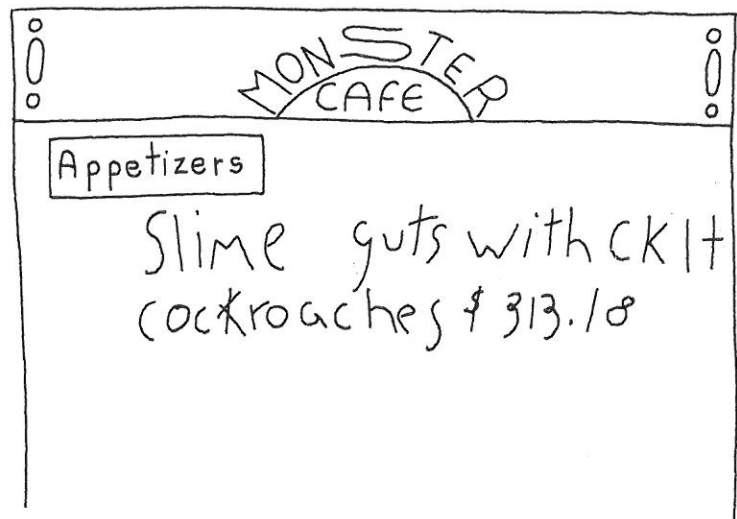 MONSTER
CAFE
Appetizers
Slime guts with
cockroaches $ 313.18